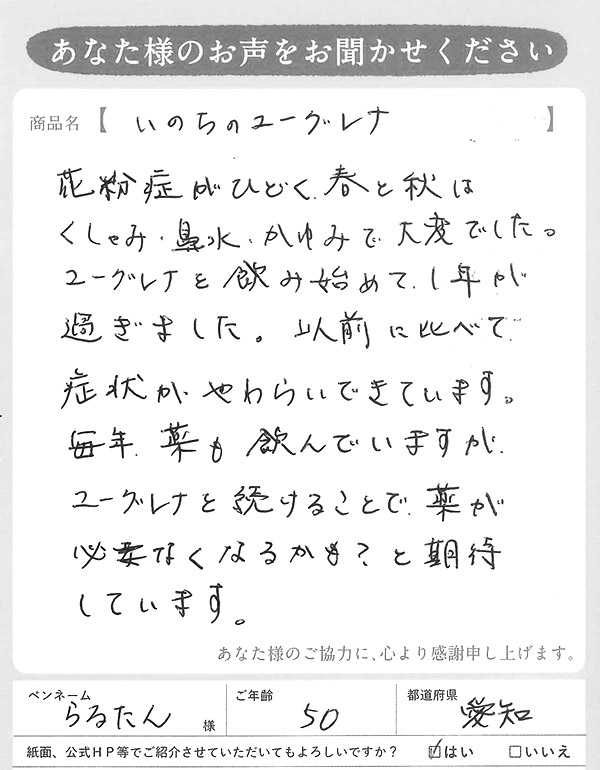 あなた様のお声をお聞かせください
商品名【 いのちのユーグレナ 】
花粉症がひどく、春と秋は
くしゃみ・鼻水・かゆみで大変でした。
ユーグレナを飲み始めて、1年が
過ぎました。以前に比べて
症状が、やわらいできています。
毎年、薬も飲んでいますが、
ユーグレナを続けることで、薬が
必要なくなるかも?と期待
しています。
あなた様のご協力に、心より感謝申し上げます。
ペンネーム らるたん 様 ご年齢 50 都道府県 愛知
紙面、公式HP等でご紹介させていただいてもよろしいですか? ☑はい □いいえ